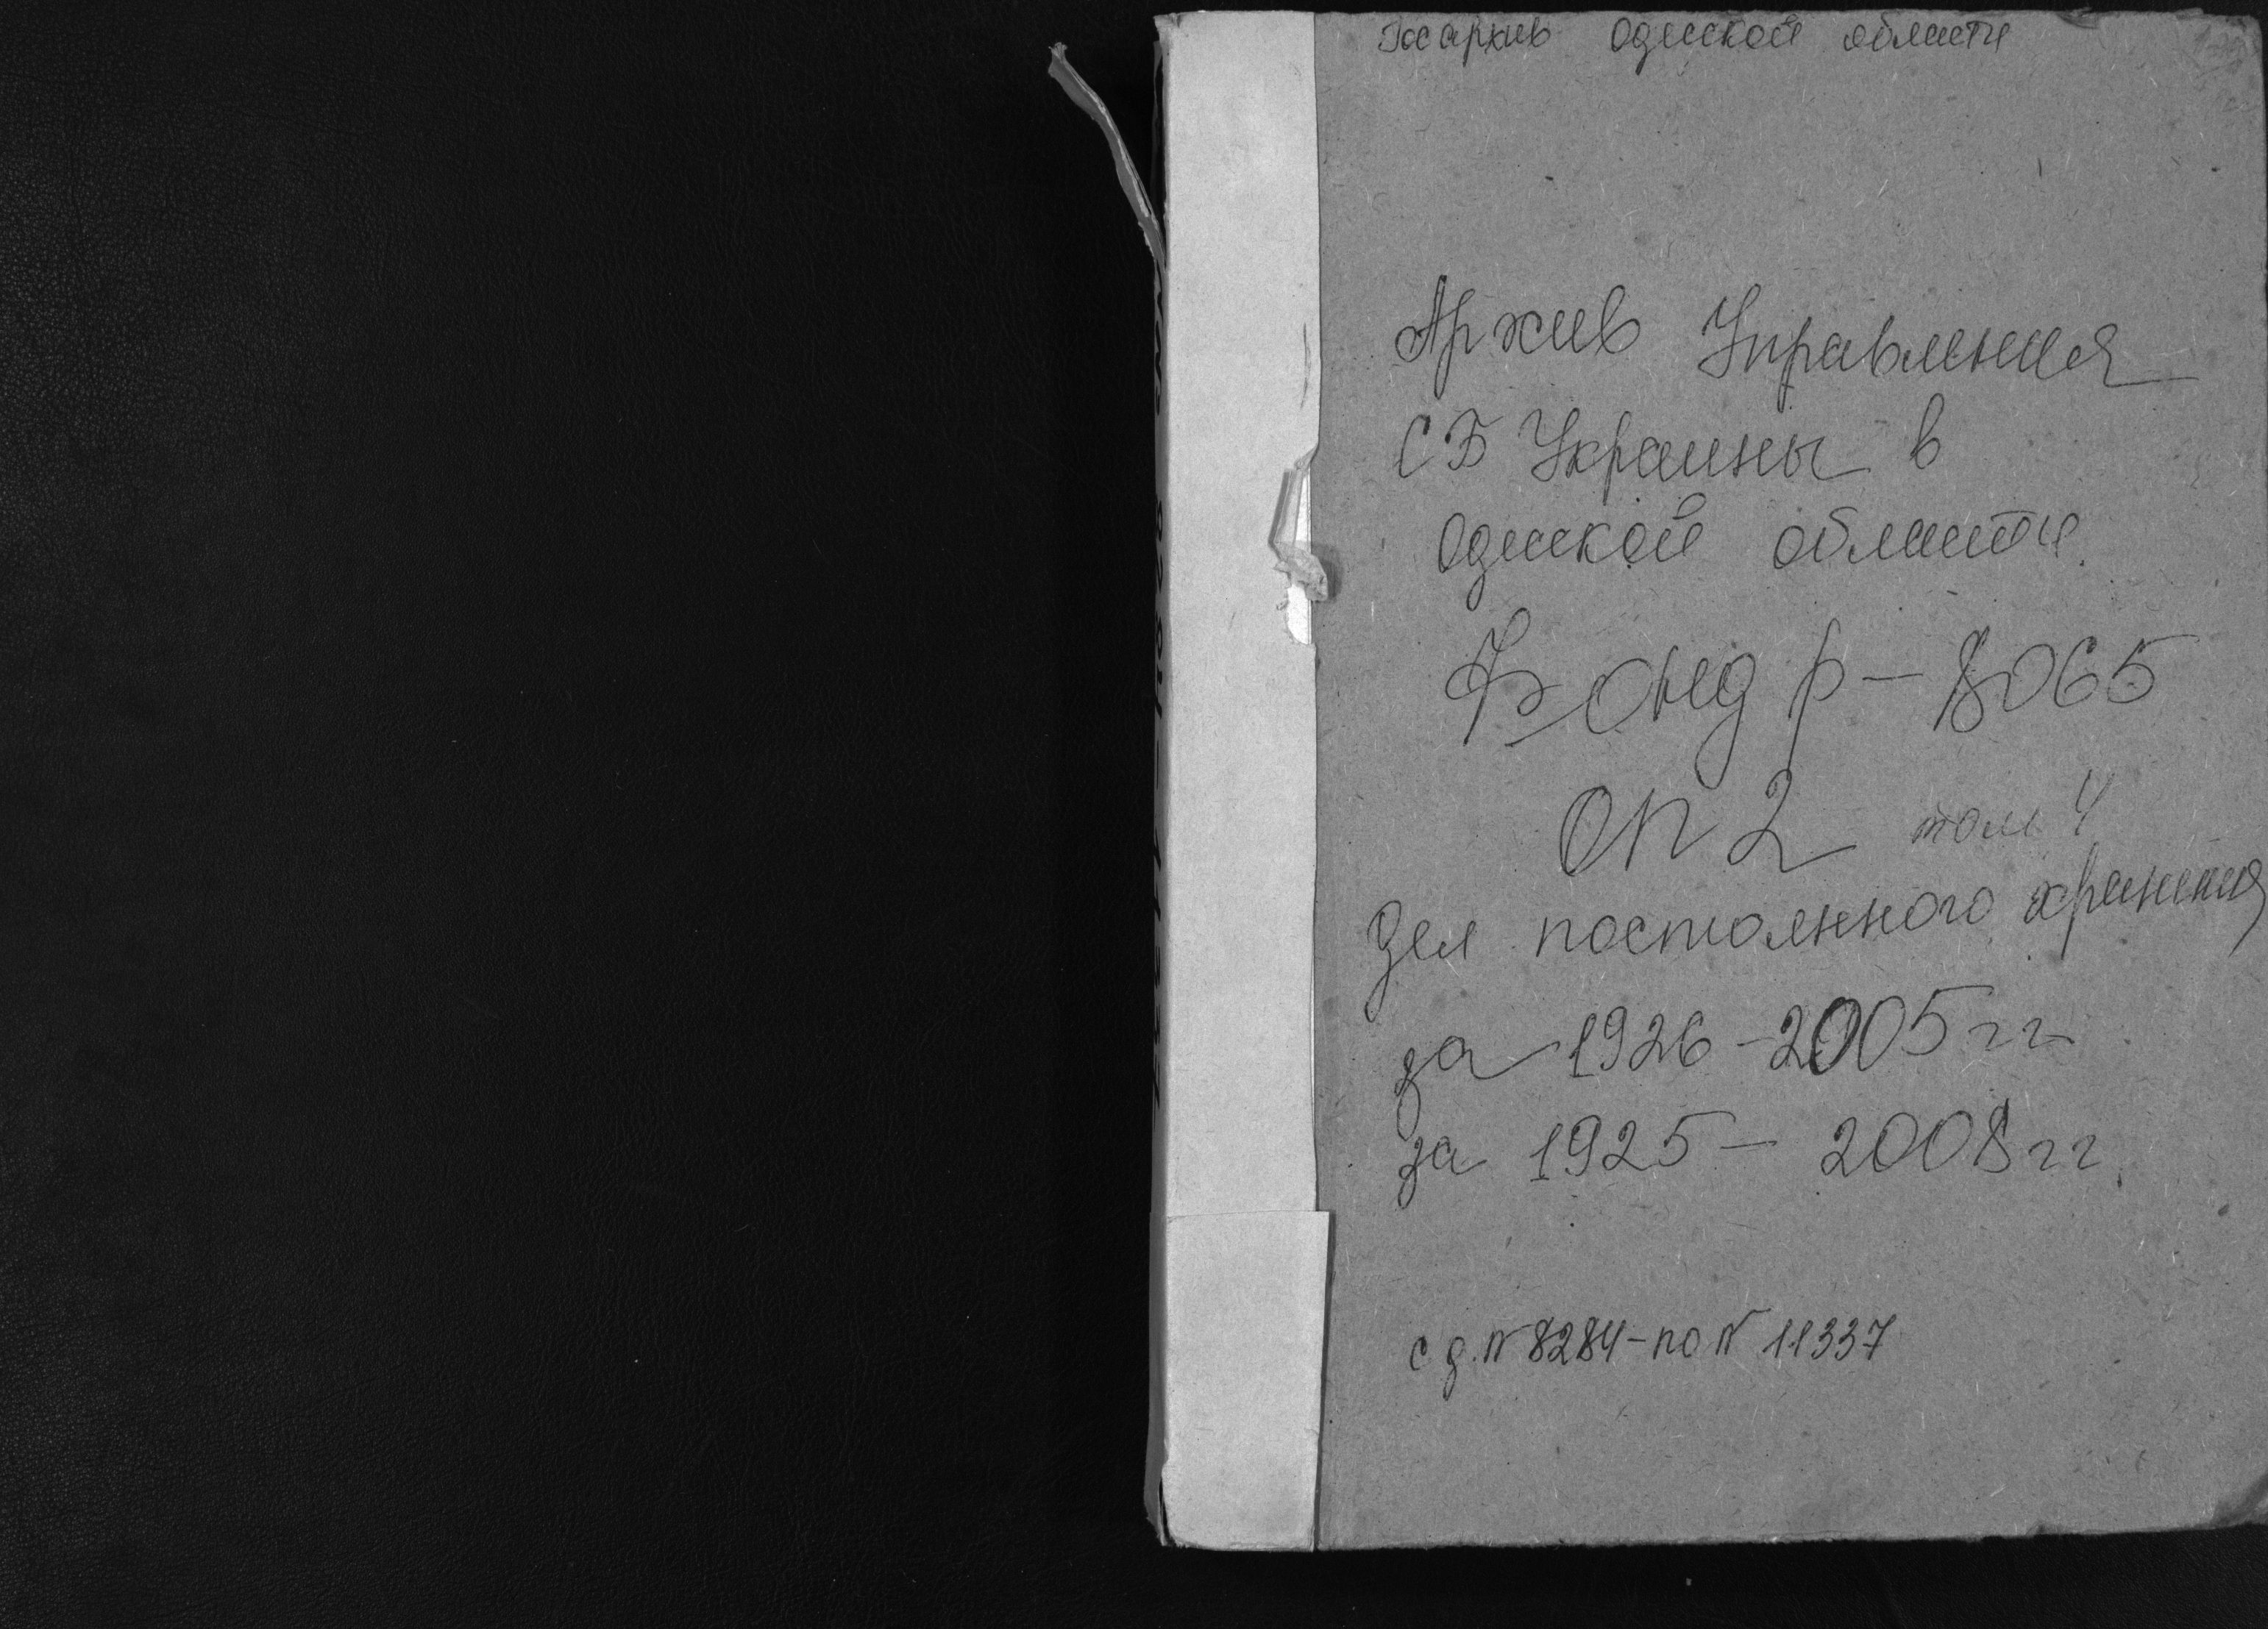 Госархив Одесской области
Архив Управления
СБ Украины в
Одесской области.
Фонд р-8065
оп 2 том 4
Дел постоянного хранения
за 1926-2005 гг
за 1925- 2008 гг.
с д.N 8284-по N 11337